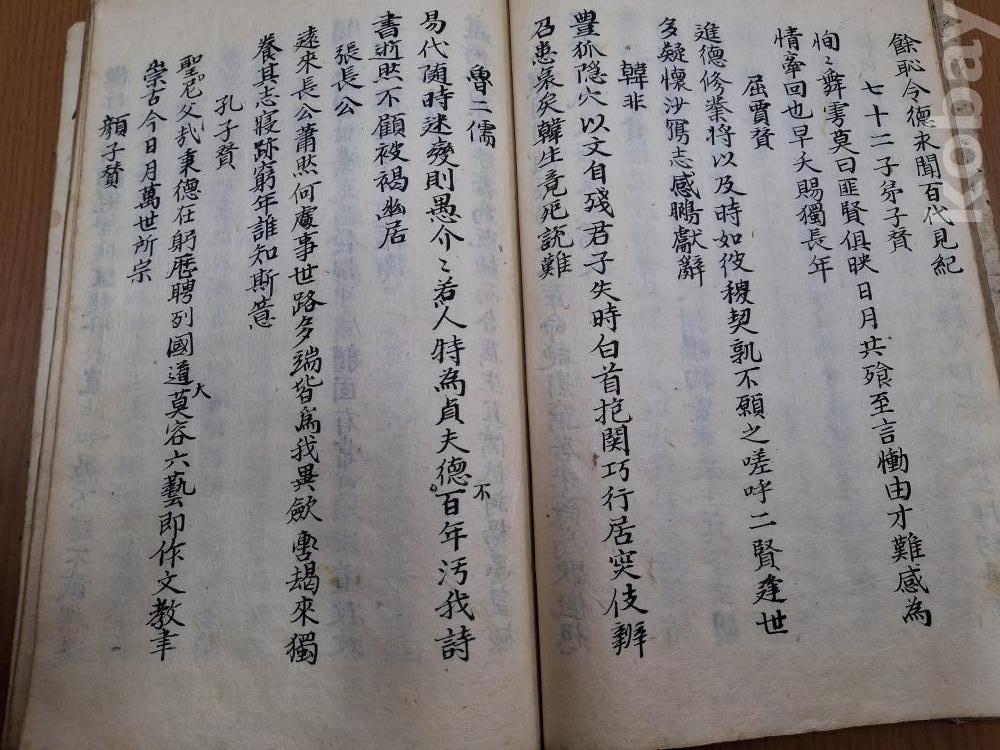 餘恥今德永聞百代見紀
七十二子弟子賛
恂〻舞雩莫曰匪賢俱映日月共飱至言慟由才難感為
情牽回也早夭賜獨長年
屈賈賛
進德修業將以及時如彼稷契孰不願之嗟呼二賢逢世
多疑懷沙寫志感鵬獻辭
韓非
豊狐隠穴以文自殘君子失時白首抱関巧行居突伎辨
召患哀矣韓生竟死說難
魯二儒
易代随時迷變則愚介〻若人特為貞夫德不百年汚我詩
書逝然不顧被褐幽居
張長公
遠來長公蕭然何處事世路多端皆為我異斂轡朅來獨
養其志寢跡窮年誰知斯意
孔子賛
聖尼父㦲秉德仕躬歴聘列國道大莫容六藝即作文敎聿
崇古今日月萬世所宗
顔子賛
kobay